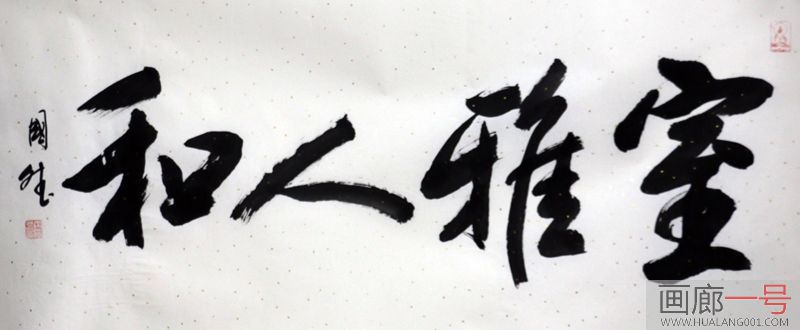 室雅人和
國生
画廊一号
WWW.HUALANG001.COM